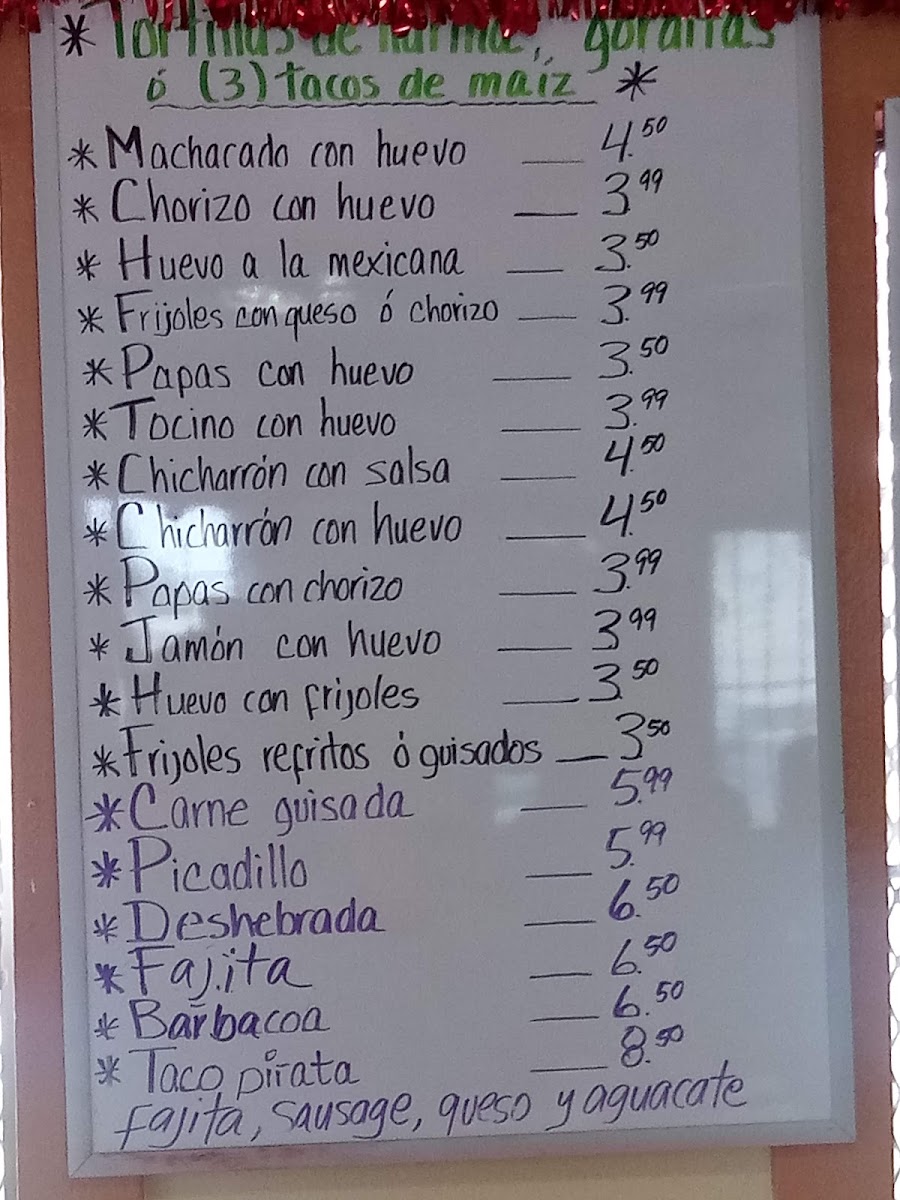 * Tortillas de harina, gorditas
ó (3) tacos de maíz *
* Machacado con huevo ___ 4.50
* Chorizo con huevo ___ 3.99
* Huevo a la mexicana ___ 3.50
* Frijoles con queso ó chorizo ___ 3.99
* Papas con huevo ___ 3.50
* Tocino con huevo ___ 3.99
* Chicharrón con salsa ___ 4.50
* Chicharrón con huevo ___ 4.50
* Papas con chorizo ___ 3.99
* Jamón con huevo ___ 3.99
* Huevo con frijoles ___ 3.50
* Frijoles refritos ó guisados ___ 3.50
* Carne guisada ___ 5.99
* Picadillo ___ 5.99
* Deshebrada ___ 6.50
* Fajita ___ 6.50
* Barbacoa ___ 6.50
* Taco pirata ___ 8.50
fajita, sausage, queso y aguacate